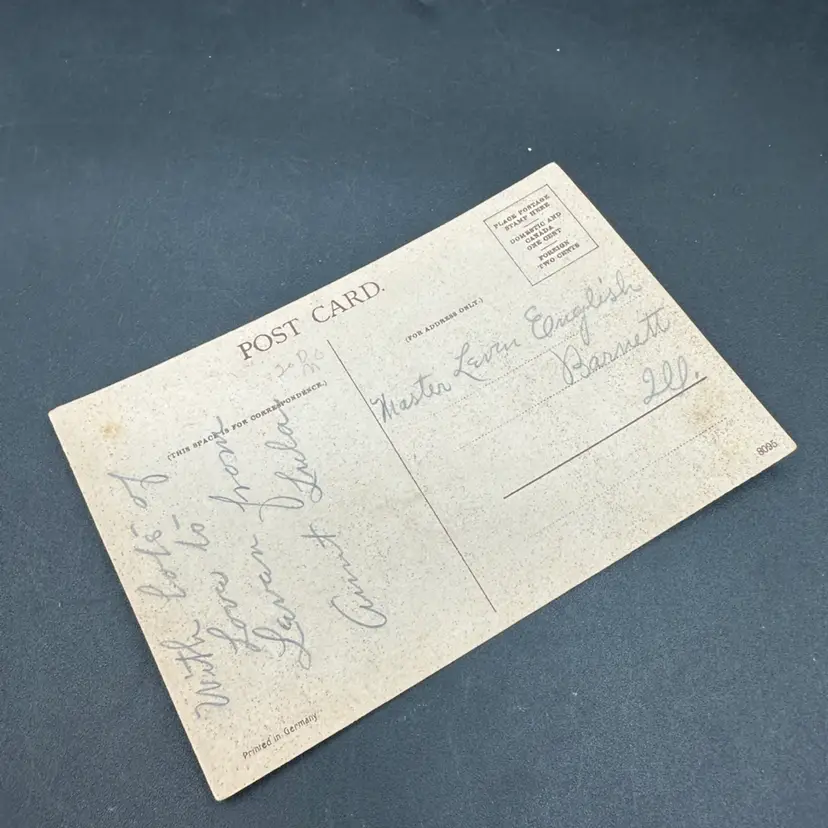 POST CARD.
(THIS SPACE IS FOR CORRESPONDENCE.)
With Lots of
Love to
Levan from
Aunt Lula
Printed in Germany.
(FOR ADDRESS ONLY.)
PLACE POSTAGE
STAMP HERE
DOMESTIC AND
CANADA
ONE CENT
FOREIGN
TWO CENTS
Master Levin English
Barnett
Ill.
8095.